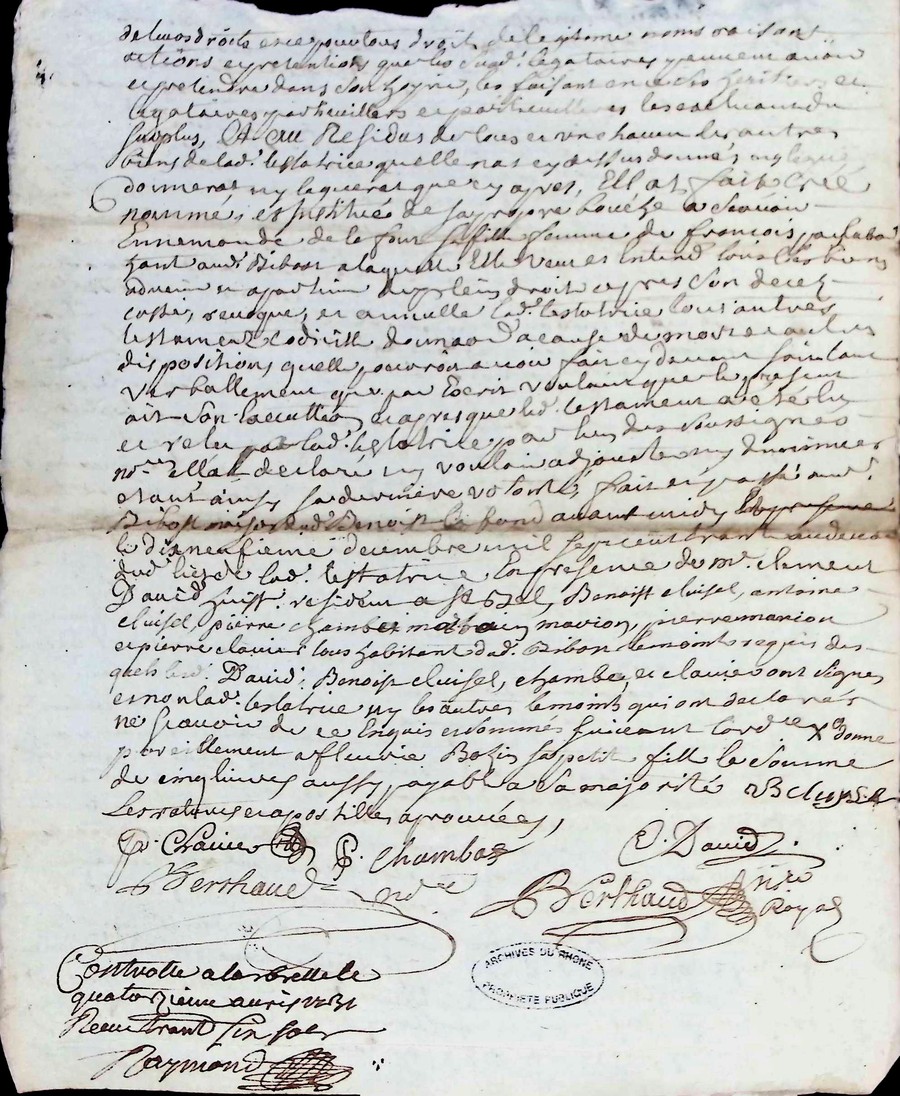 de leurs droits et ce pour tous droit de legitime noms raisons
actions et pretentions que les susd. legataires peuvent avoir
et pretendre dans son hoyrie, les faisant en ce ses heritiers et
legataires particuilliers et particuillieres les excluant du
surplus, Et au Residus de tous et un chacun les autres
biens de lad. testatrice quelle n'a cy dessus donnés ny legué
donnerat ny leguerat que cy apres, Ell at fait Créé
nommé, et Jnstitué de sa propre bouche a scavoir
Ennemonde de la font sa fille femme de francois
aud. Bibost a laquelle Elle veut et Entend tous ses biens
advenir et apartenir de plein droit apres son decez
casse, revoque, et annulle lad. testatrice tous autres
testament codicille donna&#xB0;. a cause de mort et autres
dispositions quelle pouroit avoir fait cy devant soit tant
Verballement que par Ecrit voulant que le present
ait son Execution et apres que led. testament a eté lu
et relu a lad. testatrice par lun des soussignes
no.res Ellat declaré ny vouloir adjouter ny diminuer
etant ainsy sa derniere volonté, fait et passé aud.
Bibost maison dud. Benoist avant midy
le dixneufieme decembre mil sept cent trante
dud. lieu de lad. testatrice En presence de m.e clement
David huiss. resident a St Bel, Benoist cluisel, antoine
cluisel, pierre chambe marion, pierre marion
et pierre clavier tous habitant dud. Bibost temoins requis des
quels led. David, Benoist cluisel, chambe, et clavier ont signes
et non lad. testatrice ny les autres temoins qui ont declarés
ne scavoir de ce Enquis et sommés suivant lord.ce X et donne
pareillement a fleurie Bohin sa petit fille la somme
de cinq livres aussy payable a sa majorité B cluysel
Les ratures et apostilles aprouvées,
P. Clavier P. Chambe C. David
Berthaud nore Berthaud nre
Royal
Controllé a larbresle le
quatorzieme avril 1731
Receu trante sols
Raymond
ARCHIVES DU RHONE
PROPRIETE PUBLIQUE